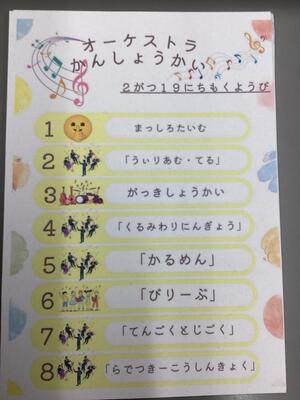 オーケストラ
かんしょうかい
2がつ19にちもくようび
1 まっしろたいむ
2 「うぃりあむ・てる」
3 がっきしょうかい
4 「くるみわりにんぎょう」
5 「かるめん」
6 「びりーぶ」
7 「てんごくとじごく」
8 「らでつきーこうしんきょく」